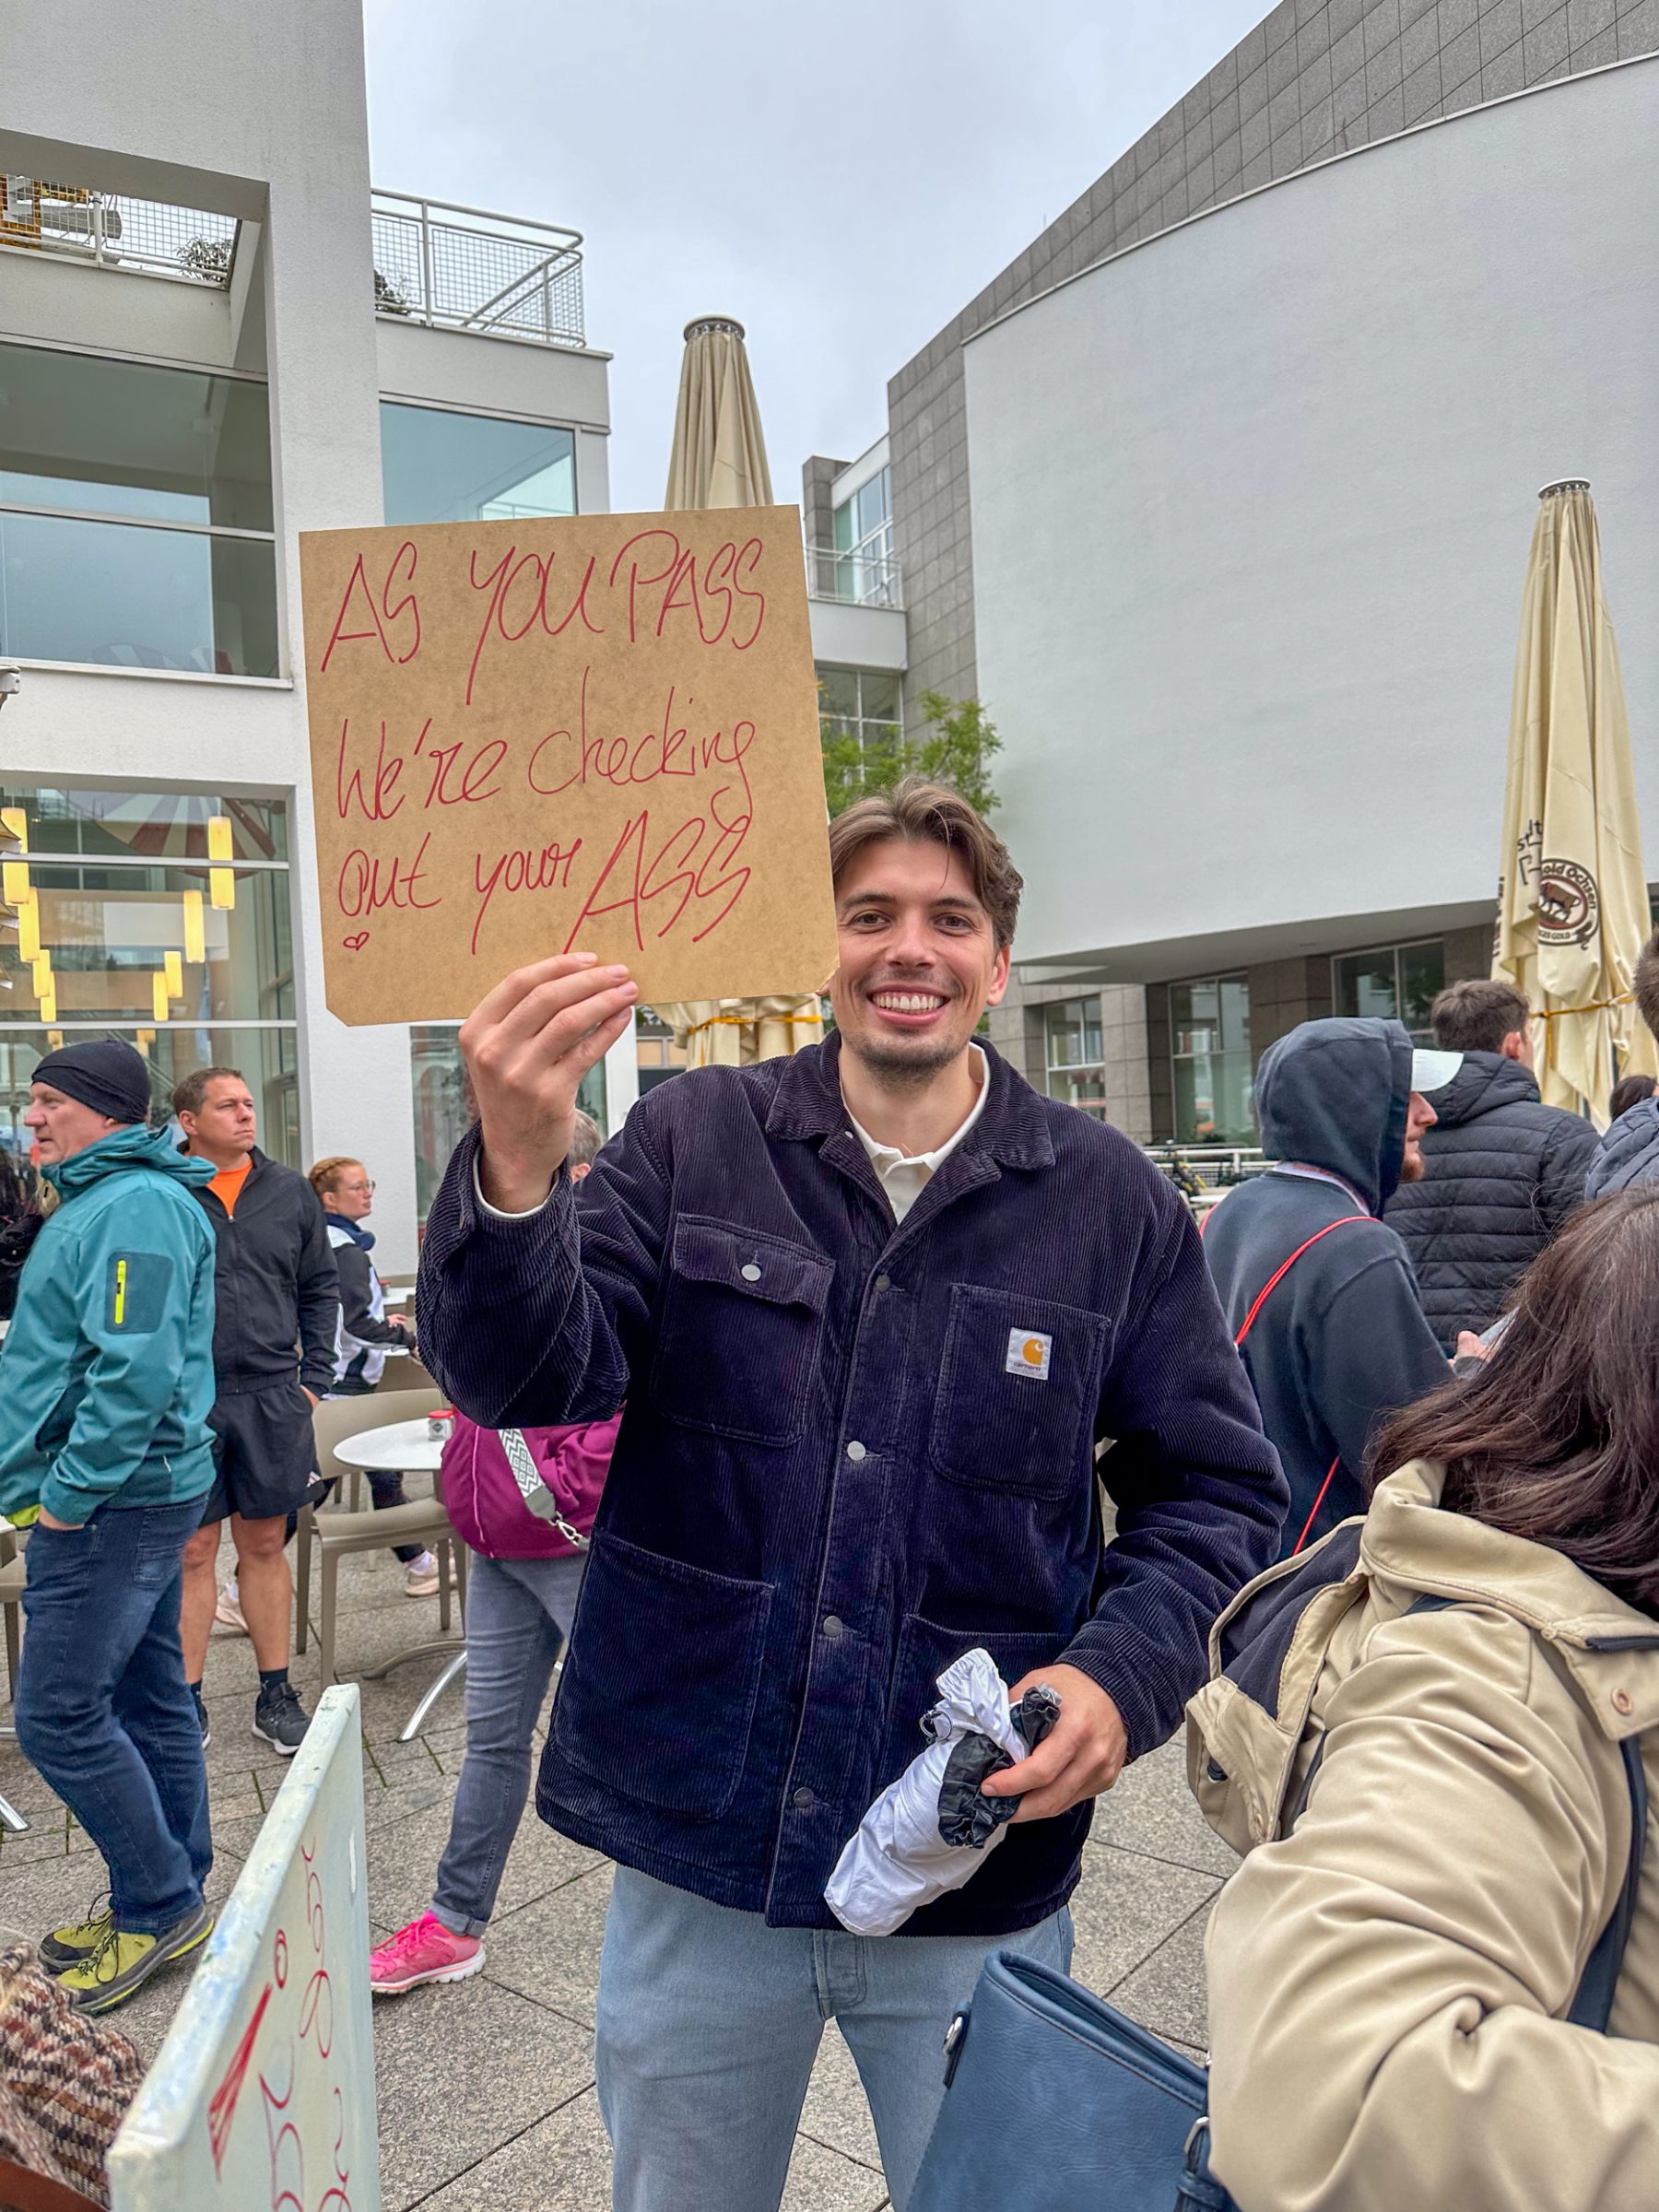 AS YOU PASS
We're checking
out your ASS
carhartt
old Ochsen